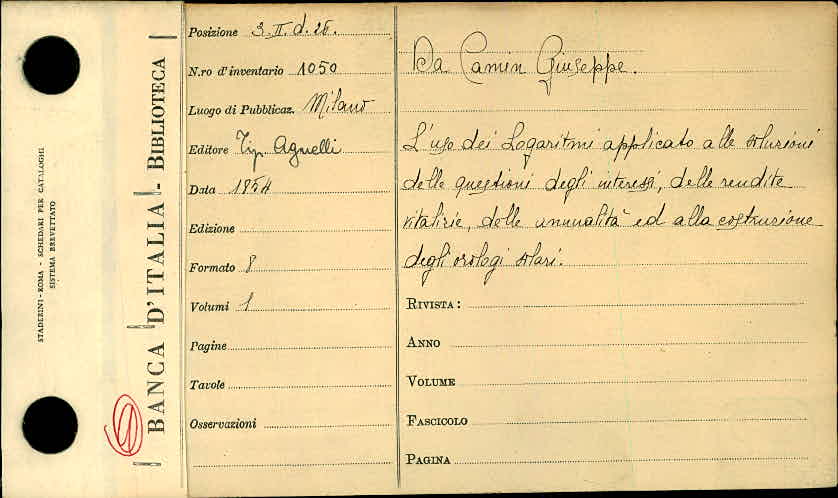 STADERINI - ROMA - SCHEDARI PER CATALOGHI
SISTEMA BREVETTATO
BANCA D'ITALIA - BIBLIOTECA
Posizione 3. II. d. 26.
N.ro d'inventario 1050
Luogo di Pubblicaz. Milano
Editore Tip. Agnelli
Data
Edizione
Formato 8
Volumi 1
Pagine
Tavole
Osservazioni
Da Camin Giuseppe.
L'uso dei Logaritmi applicato alle soluzioni
delle questioni degli interessi, delle rendite
vitalizie, delle annualità ed alla costruzione
degli orologi solari.
RIVISTA:
ANNO
VOLUME
FASCICOLO
PAGINA